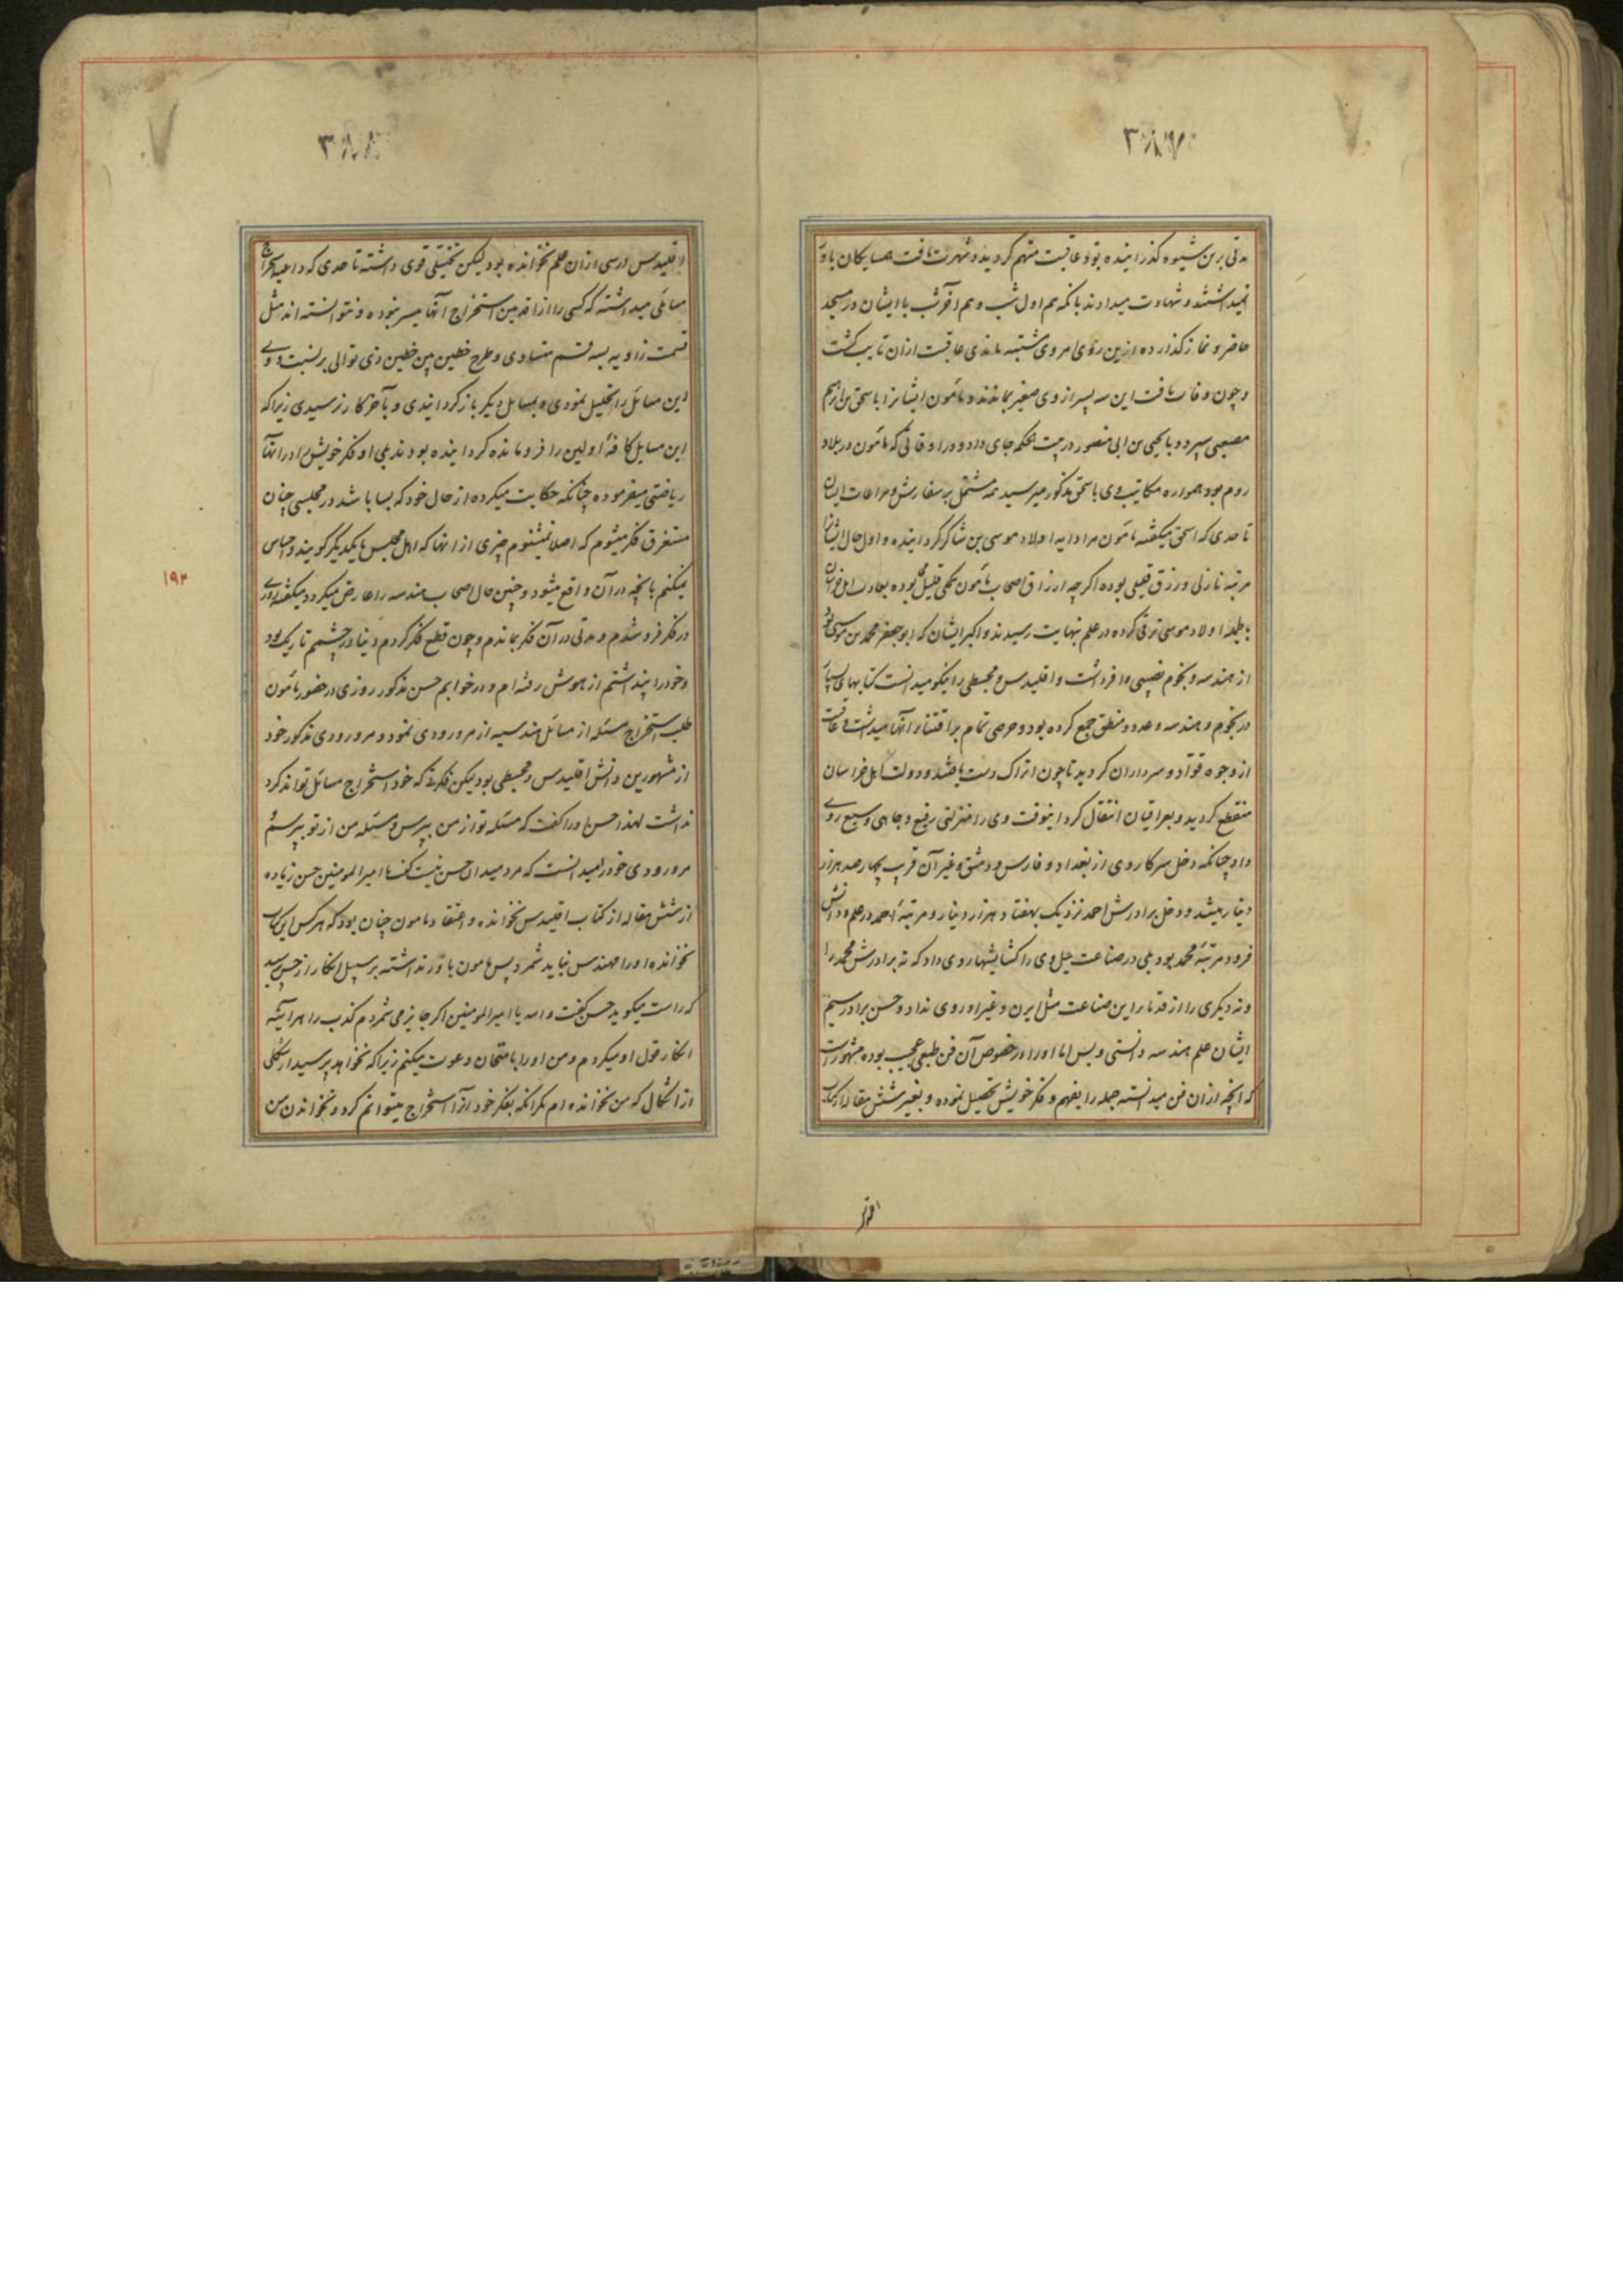 ۳۸۷
مدتی برین شیوه گذرانیده بود و عاقبت متهم گردیده شهرت یافت همسایگان باور
نمیداشتند و شهادت میدادند بانکه هم اول شب و هم آخر شب با ایشان در مسجد
حاضر و نماز گذارده ازین روی امر وی مشتبه ماندی عاقبت ازان تایب گشت
و چون وفات یافت این سه پسر از وی صغیر بماندند و مأمون ایشانرا باسحق بن ابراهیم
مصعبی سپرد و با یحیی بن ابی منصور در بیت الحکم جای داد و در اوقاتی که مأمون در بلاد
روم بود همواره مکاتیب وی باسحق مذکور میرسید همه مشتمل بر سفارش و مراعات ایشان
تا حدی که اسحق میگفته مأمون مرا دایه اولاد موسی بن شاکر گردانیده و اول حال ایشانرا
مرتبه نازلی و رزق قلیلی بوده اگر چه ارزاق اصحاب مأمون همگی قلیل بوده بعادت اهل خراسان
بالجمله اولاد موسی ترقی کرده در علم بنهایت رسیدند و اکبر ایشان که ابو جعفر محمد بن موسی بود
از هندسه و نجوم نصیبی وافر داشت و اقلیدس و مجسطی را نیکو میدانست کتابهای بسیار
در نجوم و هندسه و عدد و منطق جمع کرده بود و حرصی تمام بر اقتناء آنها میداشت و عاقبت
از وجوه قواد و سرداران گردید تا چون اتراک دست یافتند و دولت اهل خراسان
منقطع گردید و بعراقیان انتقال کرد اینوقت وی را منزلتی رفیع و جاهی وسیع روی
داد چنانکه دخل سرکار وی از بغداد و فارس و دمشق و غیر آن قریب چهار صد هزار
دینار میشد و دخل برادرش احمد نزدیک بهفتاد هزار دینار و مرتبه احمد در علم و دانش
فرود مرتبه محمد بود ولی در صناعت حیل وی را گشایشها روی داد که نه برادرش محمد را
و نه دیگری را از قدما در این صناعت مثل ایرن و غیر او روی نداد و حسن برادر سیم
ایشان علم هندسه دانستی و بس اما او را در خصوص آن فن طبعی عجیب بوده مشهور است
که آنچه ازان فن میدانسته جمله را بفهم و فکر خویش تحصیل نموده و بغیر شش مقاله از کتاب
۳۸۸
اقلیدس درسی ازان علم نخوانده بود لیکن تخیلی قوی داشته تا حدی که داعیه استخراج
مسائلی میداشته که کسی را از اقدمین استخراج آنها میسر نبوده و نتوانسته اند مثل
قسمت زاویه بسه قسم متساوی و طرح خطین بین خطین ذی توالی بر نسبت و وی
این مسائل را تحلیل نمودی و بمسایل دیگر باز گردانیدی و بآخر کار نرسیدی زیرا که
این مسایل کافه اولین را فرو مانده گردانیده بودند ولی او فکر خویش را در انها
ریاضتی میفرموده چنانکه حکایت میکرده از حال خود که بسا باشد در مجلسی چنان
مستغرق فکر میشوم که اصلا نمیشنوم چیزی از انها که اهل مجلس بایکدیگر گویند و احساس
نمیکنم بانچه در آن واقع میشود و چنین حال اصحاب هندسه را عارض میگردد میگفته روزی
در فکر فرو شدم و مدتی در آن فکر بماندم و چون قطع فکر کردم دنیا در چشمم تاریک بود
و خود را پنداشتم از هوش رفته ام و در خوابم حسن مذکور روزی در حضور مأمون
طلب استخراج مسئله از مسائل هندسیه از مرورودی نمود و مرورودی مذکور خود
از مشهورین دانش اقلیدس و مجسطی بود لیکن فکرتی که خود استخراج مسائل تواند کرد
نداشت لهذا حسن او را گفت که مسئله تو از من بپرس و مسئله من از تو بپرسم
مرورودی خود را میدانست که مرد میدان حسن نیست گفت یا امیر المومنین حسن زیاده
از شش مقاله از کتاب اقلیدس نخوانده و اعتقاد مامون چنان بود که هر کس این کتاب
نخوانده او را مهندس نباید شمرد پس مامون باور نداشته بر سبیل انکار از حسن پرسید
که راست میگوید حسن گفت والله یا امیر المومنین اگر جایز می شمردم کذب را هر آینه
انکار قول او میکردم و من او را بامتحان دعوت میکنم زیرا که نخواهد پرسید از شکلی
از اشکال که من نخوانده ام مگر انکه بفکر خود آنرا استخراج میتوانم کرد و نخواندن من
۱۹۳